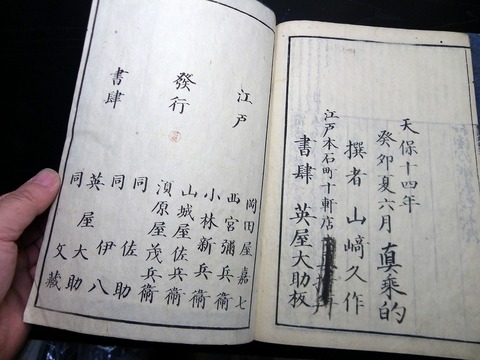 天保十四年
癸卯夏六月 真乘的
撰者 山﨑久作
江戸本石町十軒店
書肆 英屋大助板
江戸
發行
書肆
岡田屋嘉七
西宮彌兵衛
小林新兵衛
山城屋佐兵衛
須原屋茂兵衛
同 佐助
同 伊八
英屋大助
同 文藏